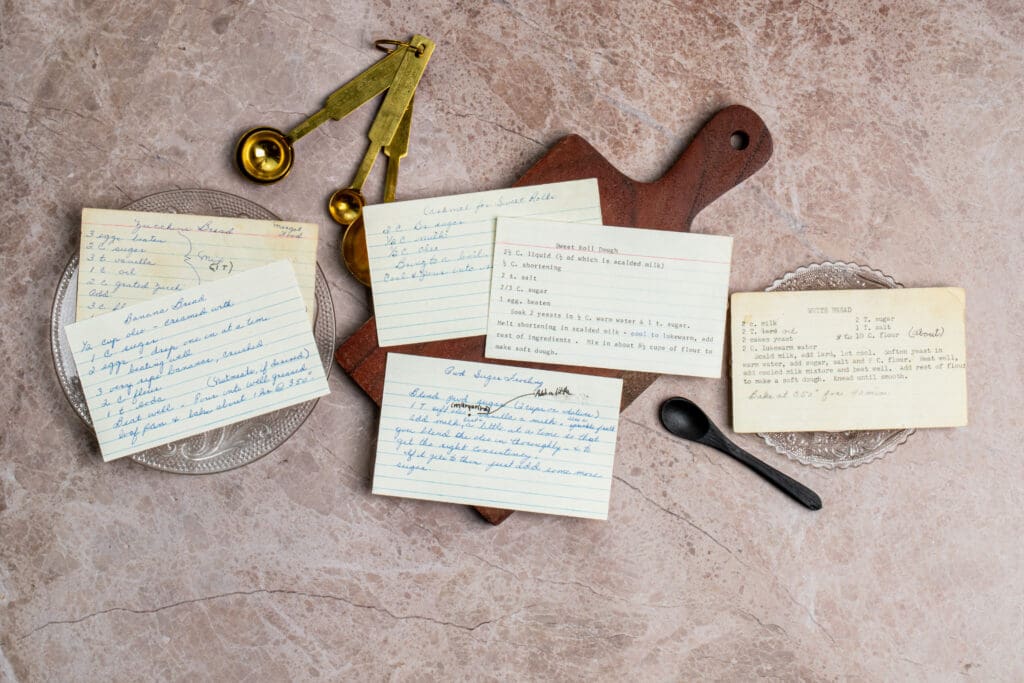 Zucchini Bread
Margot
3 eggs beaten
2 C sugar
3 t. vanilla
1 t. oil
2 C grated zucch
add
3 c. fl
mix
(1 T)
Banana Bread
½ cup oleo - creamed with
1 C sugar
2 eggs drop one in at a time
beating well
3 very ripe bananas, crushed
2 C flour (nutmeats, if desired)
1 t. soda
Beat well. Pour into well greased
loaf pan & bake about 1 hr @ 350°
Caramel for Sweet Rolls
2 C. Br. sugar
½ C. milk
½ C. oleo
Bring to a boil.
Cool & pour into
Sweet Roll Dough
2½ C. liquid (½ of which is scalded milk)
½ C. shortening
2 t. salt
2/3 C. sugar
1 egg. beaten
Soak 2 yeasts in ½ C. warm water & 1 t. sugar.
Melt shortening in scalded milk - cool to lukewarm, add
rest of ingredients. Mix in about 8½ cups of flour to
make soft dough.
Pwd Sugar Frosting
Blend pwd sugar (drips or mixture)
(margarine)
1 T. soft oleo vanilla & milk
add milk, a little at a time so that
you blend the oleo in thoroughly - & to
get the right consistency.
If it gets to thin just add some more
sugar.
WHITE BREAD
2 c. milk
2 T. lard oil
2 cakes yeast
2 C. lukewarm water
2 T. sugar
1 T. salt
10 C. flour (about)
Scald milk, add lard, let cool. Soften yeast in
warm water, add sugar, salt and 2 C. flour. Beat well,
add cooled milk mixture and beat well. Add rest of flour
to make a soft dough. Knead until smooth.
Bake at 350° for 40 min.